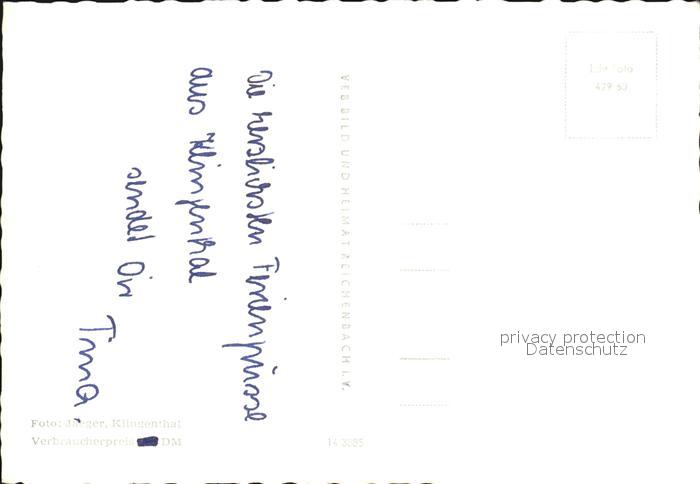 Die herzlichsten Feriengrüsse
aus Klingenthal
sendet Dir
Timo.
VEB BILD UND HEIMAT REICHENBACH I. V.
Echt Foto
429 60
privacy protection
Datenschutz
Foto: Jaeger, Klingenthal
Verbraucherpreis DM
14 3885